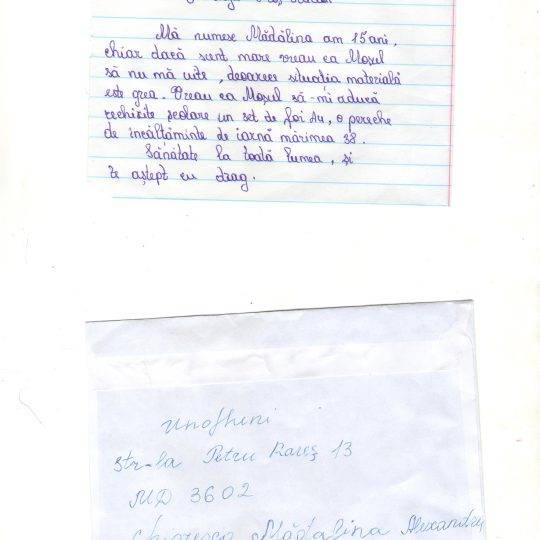 Mă numesc Mădălina am 15 ani,
chiar dacă sunt mare vreau ca Moșul
să nu mă uite, deoarece situația materială
este grea. Vreau ca Moșul să-mi aducă
rechizite școlare un set de foi A4, o pereche
de încălțăminte de iarnă mărimea 38.
Sănătate la toată lumea, și
te aștept cu drag.
Ungheni
str-la Petru Rareș 13
MD 3602
Mădălina Alexandru